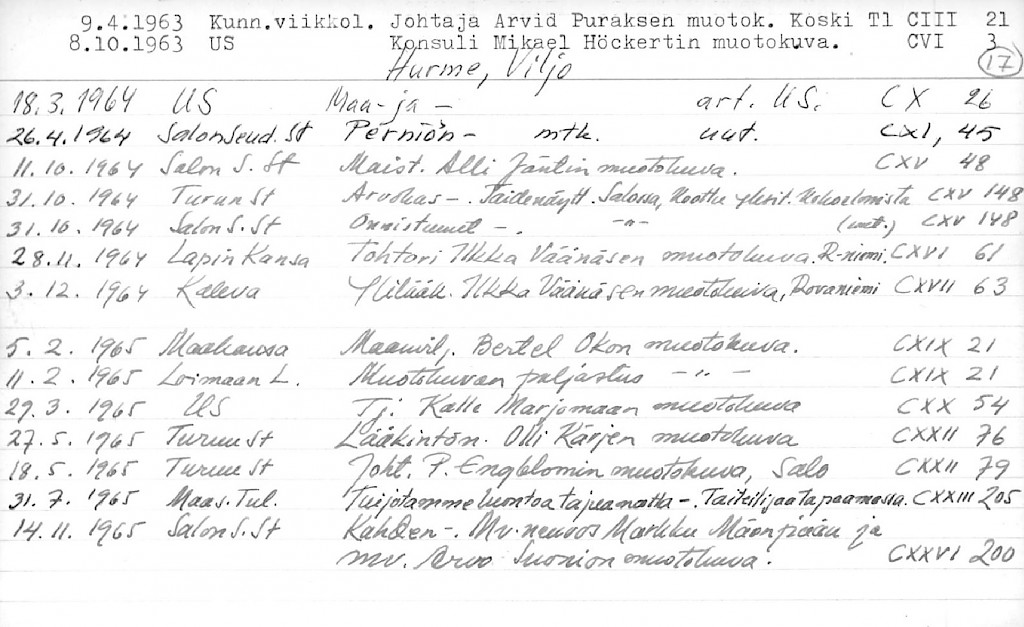 9.4.1963 Kunn.viikkol. Johtaja Arvid Puraksen muotok. Koski Tl CIII 21
8.10.1963 US Konsuli Mikael Höckertin muotokuva. CVI 3
Hurme, Viljo 17
18.3.1964 US Maa- ja - art. US. CX 26
26.4.1964 Salon Seud. St Perniön - mtk. uut. CXI, 45
11.10.1964 Salon S. St Maist. Alli Jäntin muotokuva. CXV 48
31.10.1964 Turun St Arvokas -. Taidenäytt. Salossa, Koottu yksit. kokoelmista CXV 148
31.10.1964 Salon S. St Onnistunut -. -"- (uut.) CXV 148
28.11.1964 Lapin Kansa Tohtori Ilkka Väänäsen muotokuva. R-niemi. CXVI 61
3.12.1964 Kaleva Ylilääk. Ilkka Väänäsen muotokuva, Rovaniemi CXVII 63
5.2.1965 Maakansa Maanvilj. Bertel Okon muotokuva. CXIX 21
11.2.1965 Loimaan L. Muotokuvan paljastus -"- CXIX 21
29.3.1965 US Tj. Kalle Marjomaan muotokuva CXX 54
27.5.1965 Turun St Lääkintön. Olli Kärjen muotokuva CXXII 76
18.5.1965 Turun St Joht. P. Engblomin muotokuva, Salo CXXII 79
31.7.1965 Maas. Tul. Tuijotamme luontoa tajuamatta -. Taiteilijaa tapaamassa. CXXIII 205
14.11.1965 Salon S. St Kahden -. Mv.neuvos Markku Mäenpään ja
mv. Arvo Suonion muotokuva. CXXVI 200